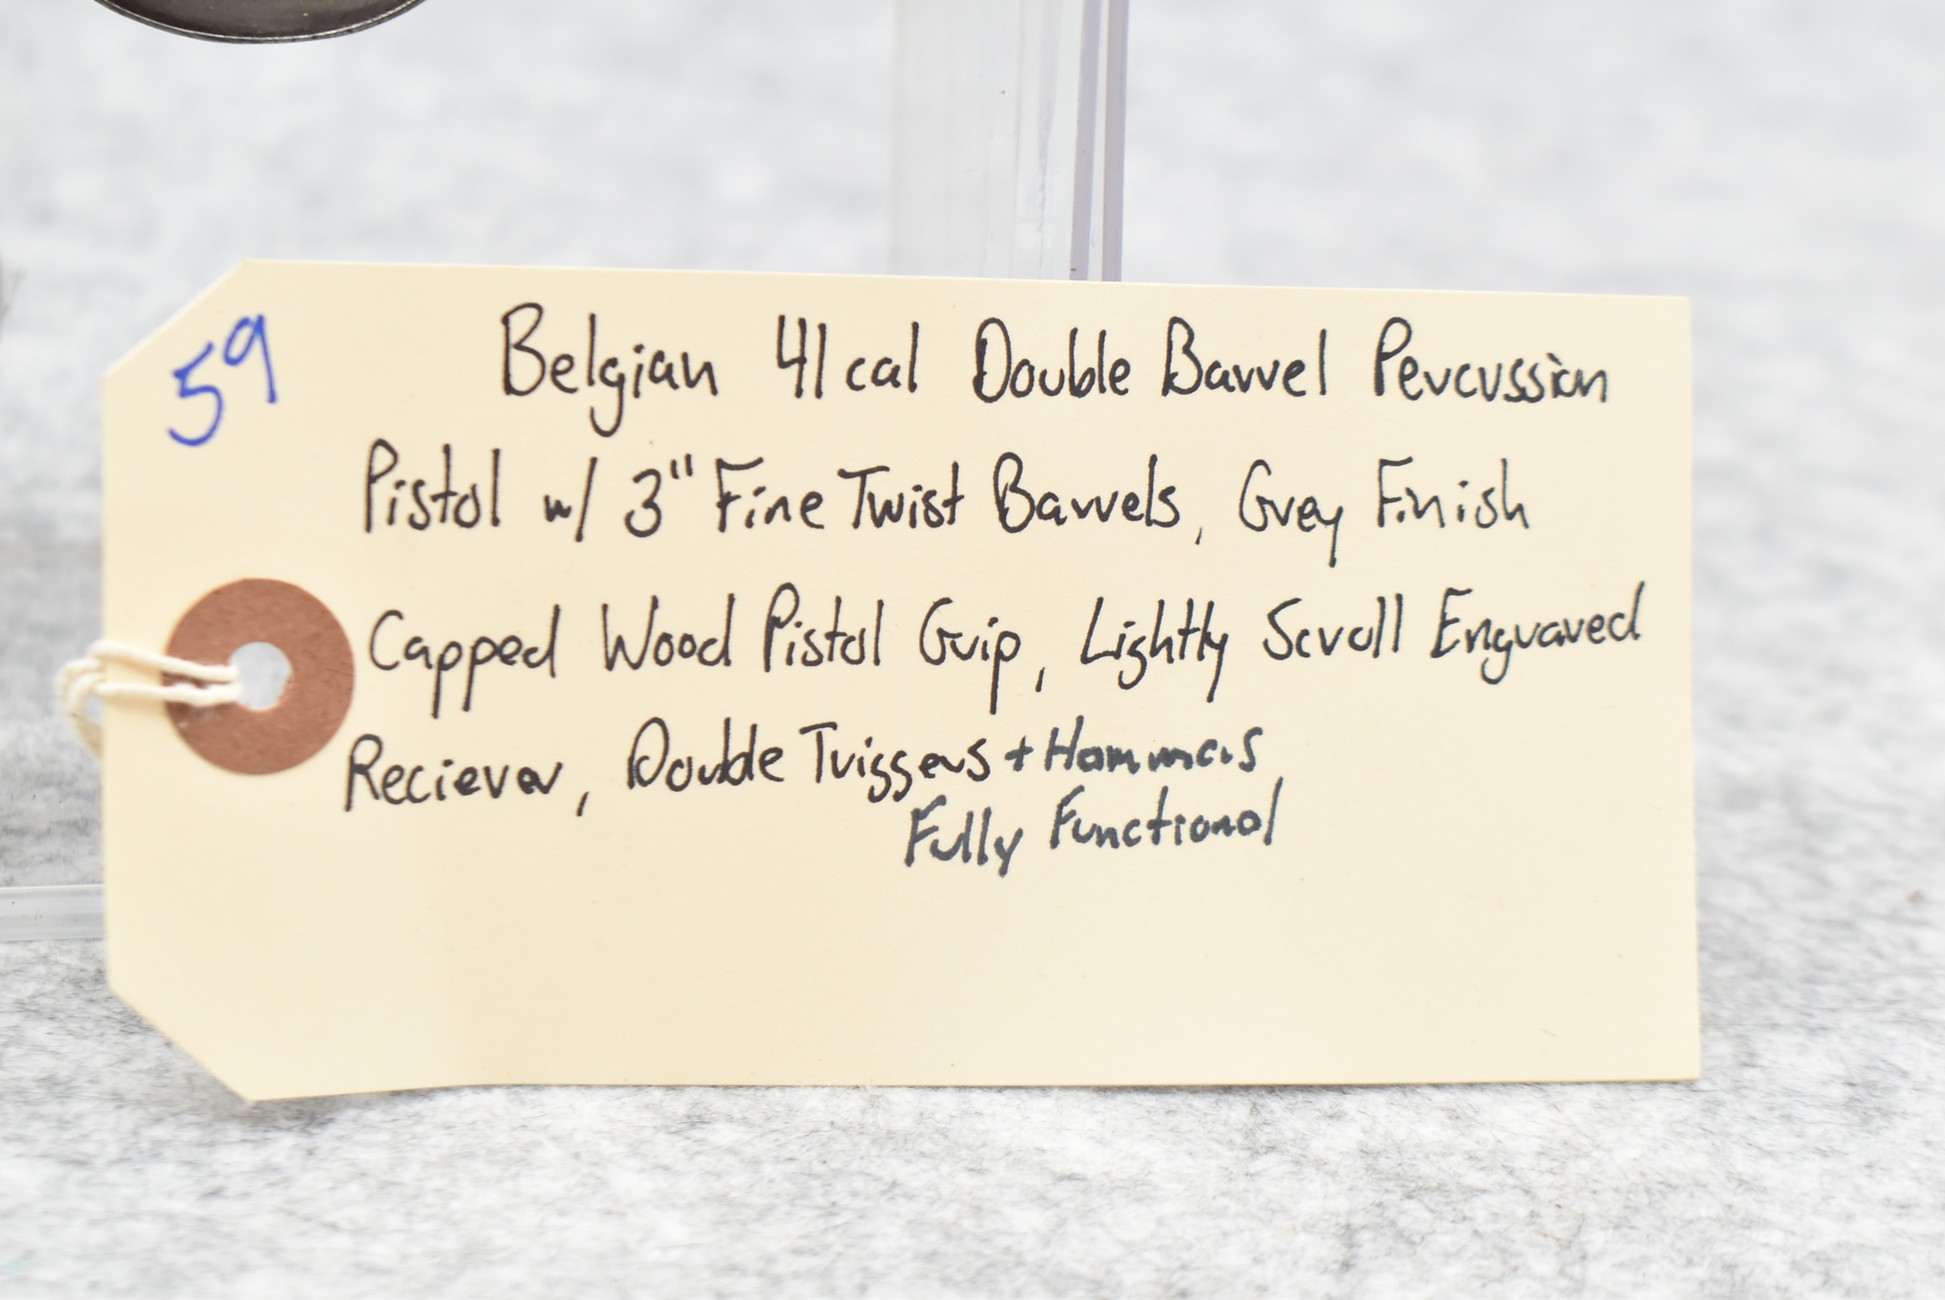 59
Belgian 41 cal Double Barrel Percussion
Pistol w/ 3" Fine Twist Barrels, Grey Finish
Capped Wood Pistol Grip, Lightly Scroll Engraved
Reciever, Double Triggers + Hammers
Fully Functional